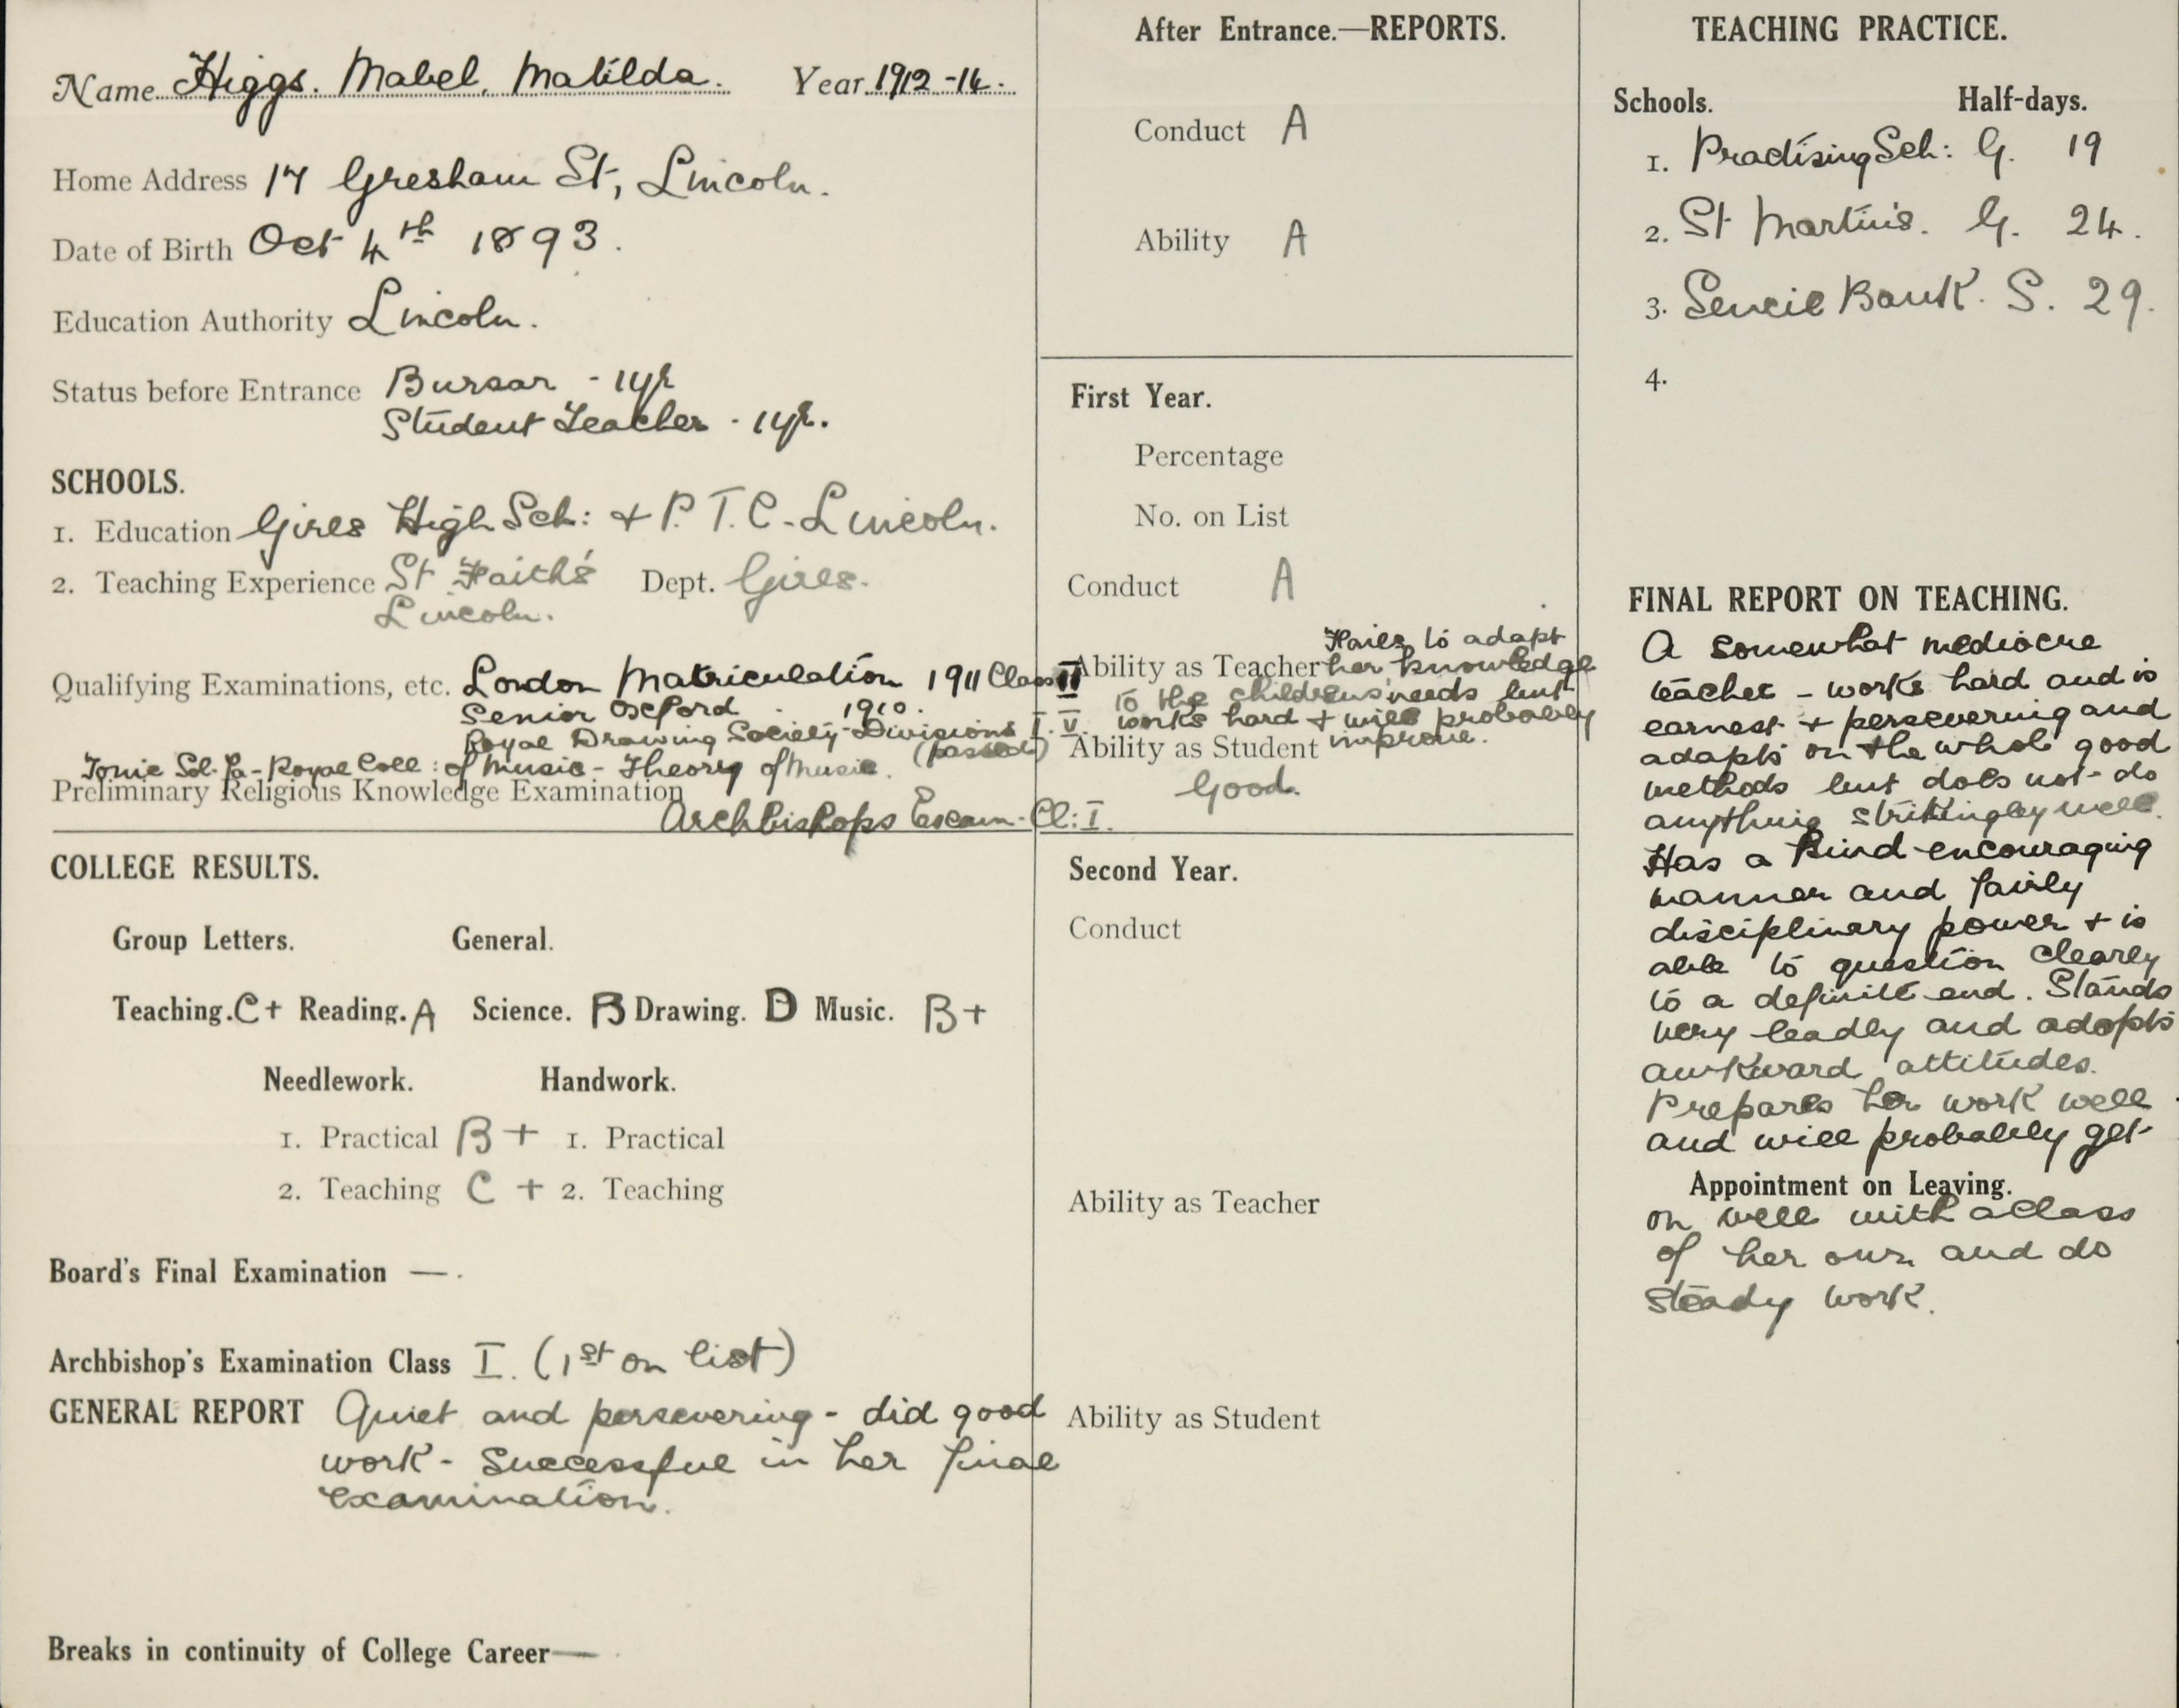 Name Higgs. Mabel. Matilda. Year 1912-14.
Home Address 17 Gresham St, Lincoln.
Date of Birth Oct 4th 1893.
Education Authority Lincoln.
Status before Entrance Bursar - 1yr
Student Teacher - 1yr.
SCHOOLS.
1. Education Girls High Sch: + P.T.C. - Lincoln.
2. Teaching Experience St Faith's Dept. Girls.
Lincoln.
Qualifying Examinations, etc. London Matriculation 1911 Class II
Senior Oxford 1910.
Royal Drawing Society - Divisions I. V.
(passed)
Tonic Sol-fa - Royal Coll: of Music - Theory of Music.
Preliminary Religious Knowledge Examination
Archbishops Exam - Cl: I.
COLLEGE RESULTS.
Group Letters. General.
Teaching. C+ Reading. A Science. B Drawing. D Music. B+
Needlework. Handwork.
1. Practical B+ 1. Practical
2. Teaching C+ 2. Teaching
Board's Final Examination — .
Archbishop's Examination Class I. (1st on list)
GENERAL REPORT Quiet and persevering - did good
work - Successful in her final
examination.
Breaks in continuity of College Career—
After Entrance.—REPORTS.
Conduct A
Ability A
First Year.
Percentage
No. on List
Conduct A
Ability as Teacher Fails to adapt
her knowledge
to the childrens' needs but
works hard + will probably
improve.
Ability as Student
Good.
Second Year.
Conduct
Ability as Teacher
Ability as Student
TEACHING PRACTICE.
Schools. Half-days.
1. Practising Sch: G. 19
2. St Martin's. G. 24.
3. Sencil Bank. S. 29.
4.
FINAL REPORT ON TEACHING.
A somewhat mediocre
teacher - works hard and is
earnest + persevering and
adapts on the whole good
methods but does not do
anything strikingly well.
Has a kind encouraging
manner and fairly
disciplinary power + is
able to question clearly
to a definite end. Stands
very badly and adopts
awkward attitudes.
Prepares her work well
and will probably get
Appointment on Leaving.
on well with a class
of her own and do
steady work.